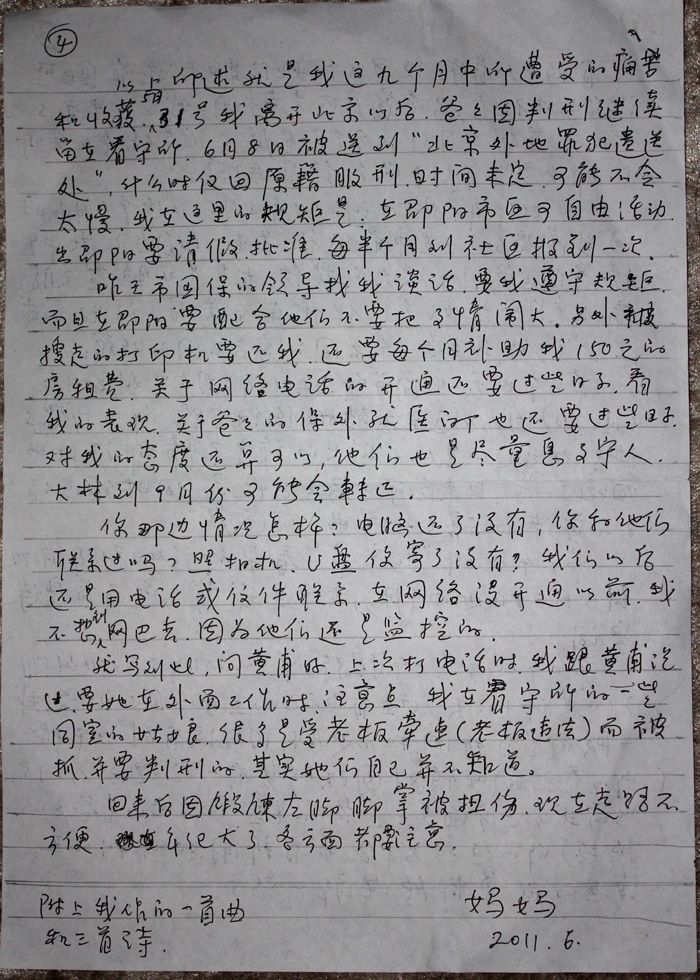 ④
以上所述就是我这九个月中所遭受的痛苦
和收获。5月31号我离开北京以后,爸爸因判刑继续
留在看守所。6月8日被送到“北京外地罪犯遣送
处”,什么时候回原籍服刑,时间未定,可能不会
太慢。我在这里的规矩是:在邵阳市区可自由活动
出邵阳要请假,批准。每半个月到社区报到一次。
昨天市国保的领导找我谈话,要我遵守规矩,
而且在邵阳要配合他们不要把事情闹大。另外被
搜走的打印机要还我,还要每个月补助我150元的
房租费。关于网络电话的开通还要过些日子,看
我的表现。关于爸爸的保外就医的也还要过些日子。
对我的态度还算可以,他们也是尽量息事宁人。
大林到9月份可能会转正。
你那边情况怎样?电脑还了没有,你和他们
联系过吗?照相机、U盘你寄了没有?我们以后
还是用电话或信件联系,在网络没开通以前,我
不想到网巴去,因为他们还是监控的。
就写到此,问黄甫好。上次打电话时,我跟黄甫说
过,要她在外面工作时,注意点。我在看守所的一些
同室的姑娘,很多是受老板牵连(老板违法)而被
抓,并要判刑的,其实她们自己并不知道。
回来后因锻炼左脚脚掌被扭伤,现在走路不
方便。年纪大了,各方面都要注意。
附上我作的一首曲
和三首诗。
妈妈
2011.6.